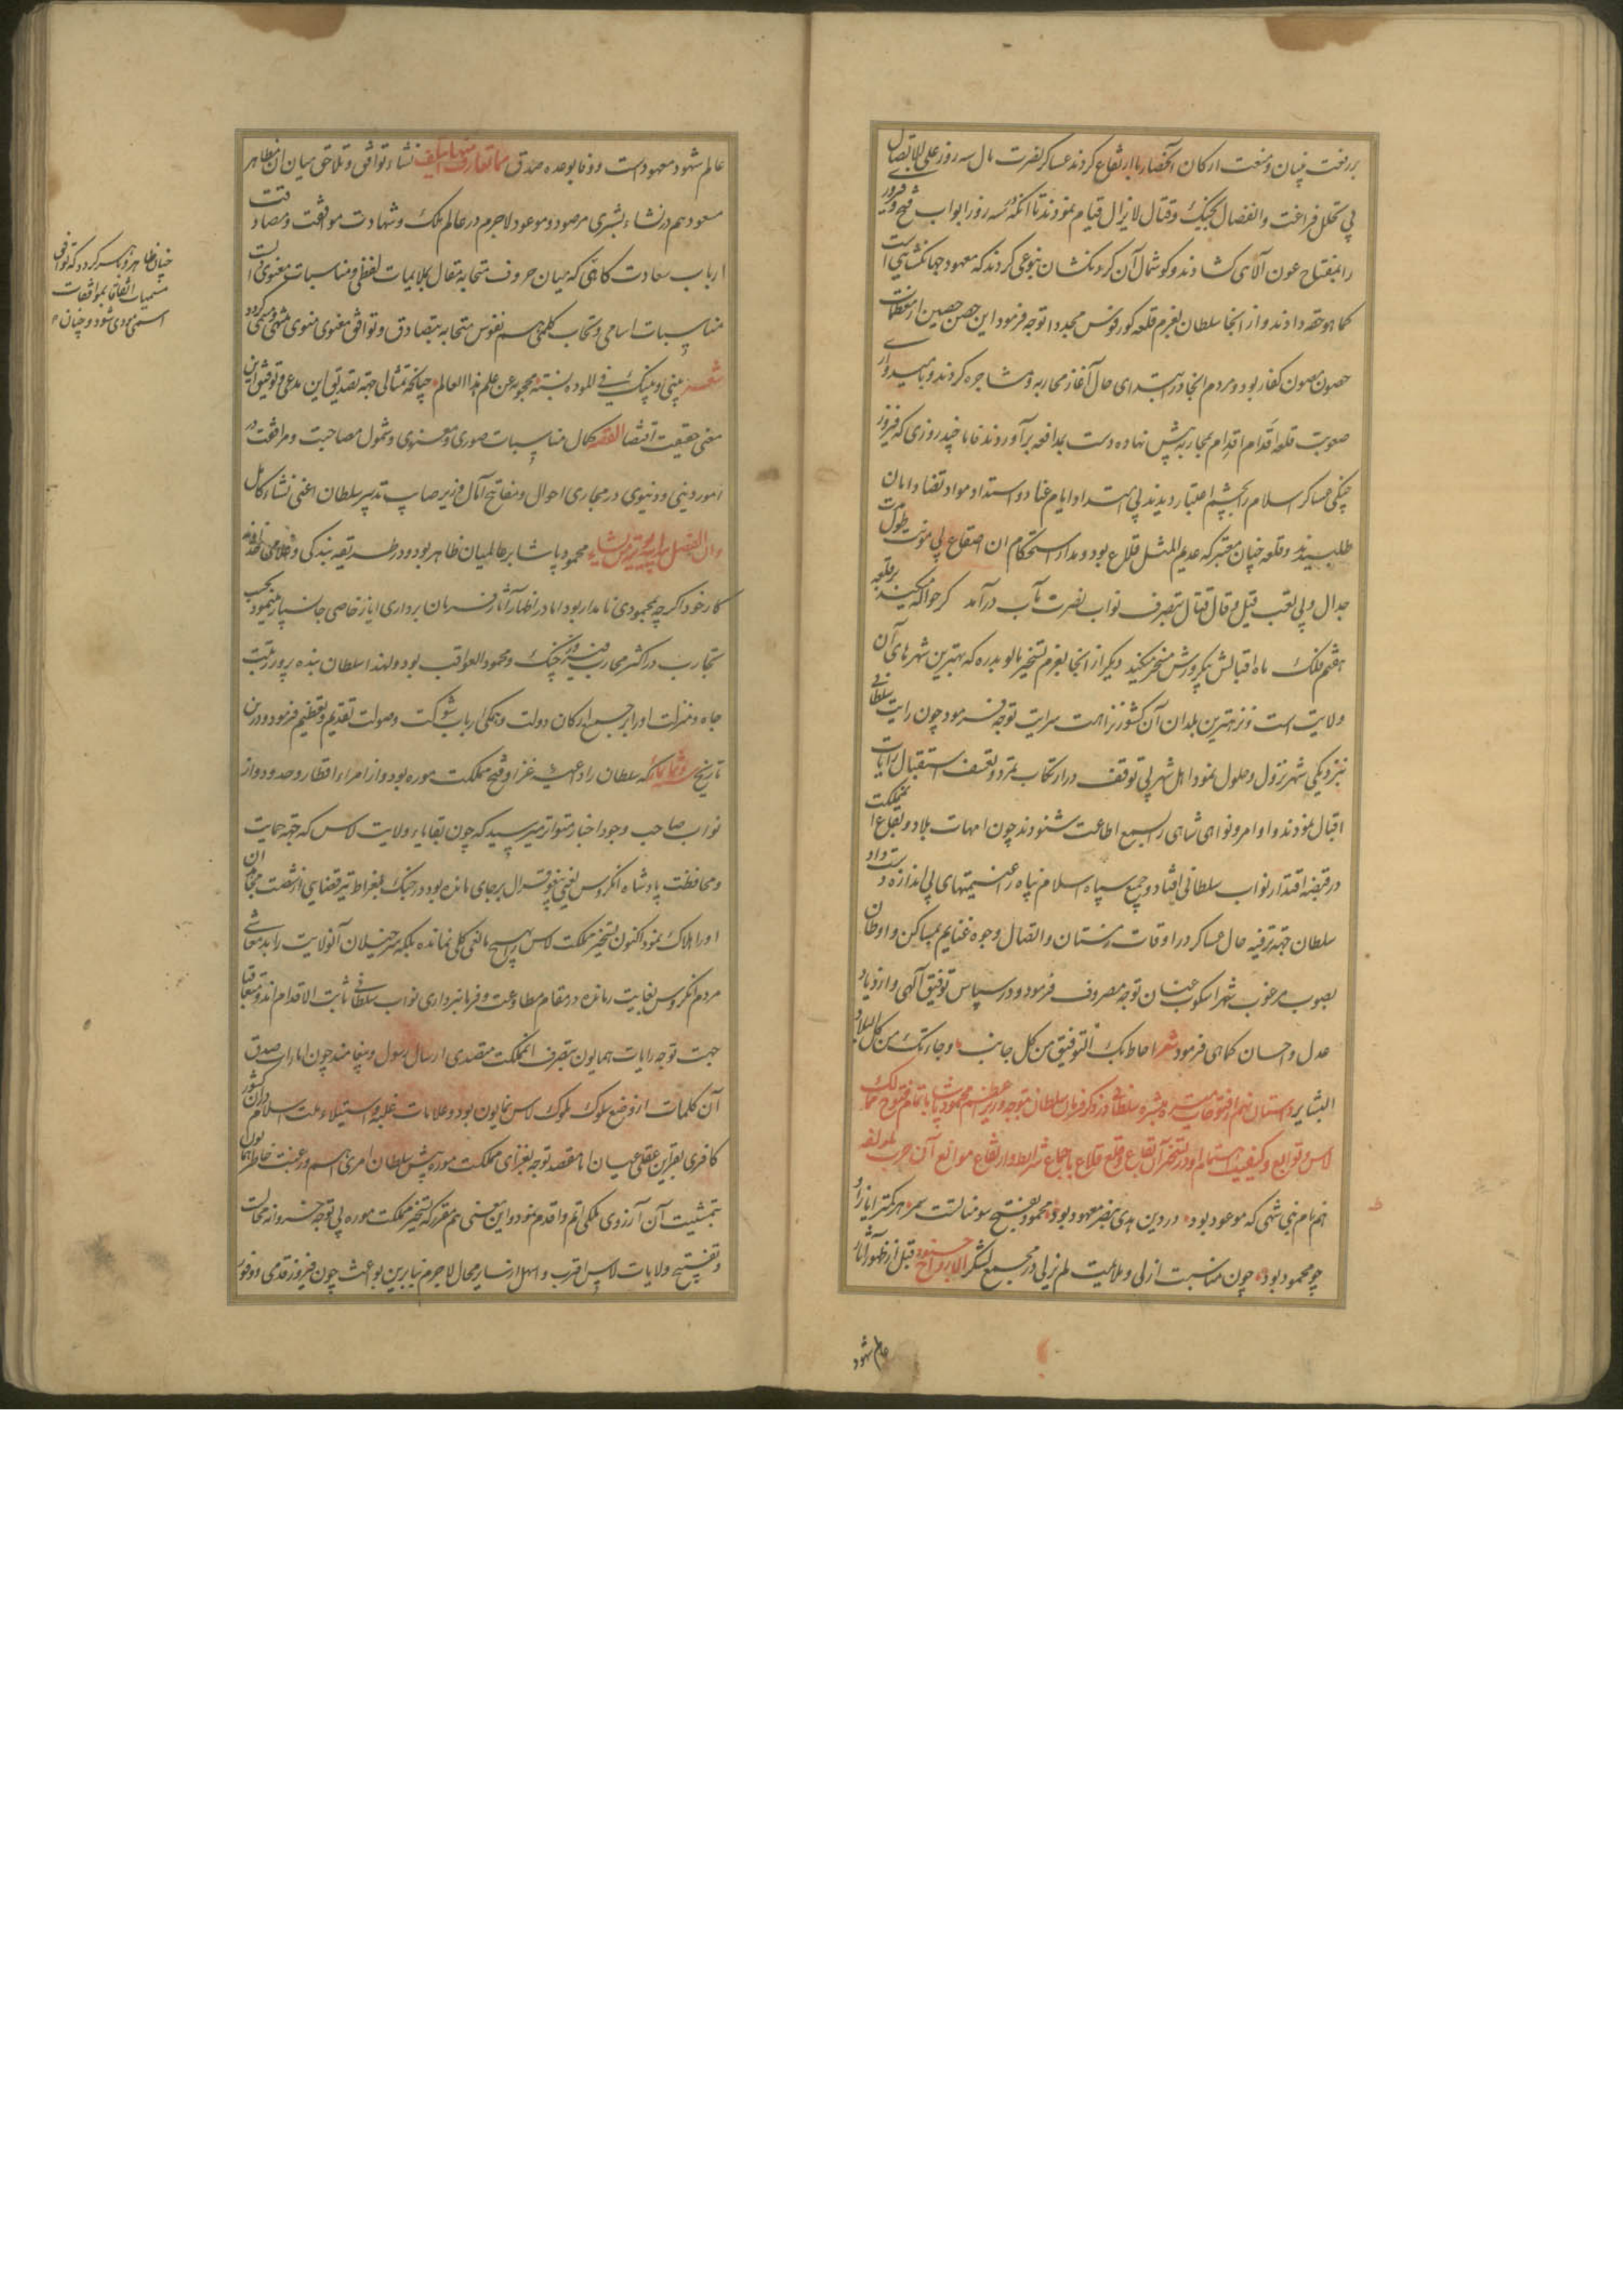 بر رفعت بنیان و منعت ارکان آن حصار با ارتفاع کردند عساکر نصرت مآل سه روز علی الاتصال
بی تخلل فراغت و انفصال بجنگ و قتال لایزال قیام نمودند تا آنکه در سه روز ابواب فتح و فیروزی
را بمفتاح عون آلای کشادند و کوشمال آن کردنکشان بنوعی کردند که معهود جهانکشایی است
کما هو حقه دادند و از آنجا سلطان بعزم قلعه کورفوس مجددا توجه فرمود این حصن حصین از معظمات
حصون مصون کفار بود و مردم آنجا در ابتدای حال آغاز محاربه و مشاجره کردند و بامیدواری
صعوبت قلعه اقدام اقدام بمحاربه پیش نهاده دست بمدافعه برآوردند فاما چند روزی که فیروز
جنکی عساکر اسلام را بچشم اعتبار دیدند بی امتداد ایام عناد و استداد مواد تضاد امان
طلبیدند و قلعه چنان معتبر که عدیم المثل قلاع بود و مدار استحکام آن اصقاع بی مؤنت طول مدت
جدال و بی تعب قیل و قال قتال بتصرف نواب نصرت مآب درآمد کر حواله میکند بر قلعه
هفتم فلک ماه اقبالش بیکروزش مسخر میکند دیکر از آنجا بعزم تسخیر بالوبدره که بهترین شهرهای آن
ولایت است و نزهترین بلدان آن کشور نزاهت سرایت توجه فرمود چون رایت سلطانی
بنزدیکی شهر نزول و حلول نمود اهل شهر بی توقف در ارتکاب تمرد و تعسف استقبال رایات
اقبال نمودند و اوامر و نواهی شاهی را بسمع اطاعت شنودند چون امهات بلاد و بقاع آن مملکت
در قبضه اقتدار نواب سلطانی افتاد و جمیع سپاه اسلام پناه را غنیمتهای بی اندازه دست داد
سلطان جهة ترفیه حال عساکر در اوقات زمستان و ایصال وجوه غنایم بمساکن و اوطان
بصوب مرغوب شهر اسکوب عنان توجه مصروف فرمود و در سپاس توفیق آلهی و ازدیاد
عدل و احسان کماهی فرمود شعر احاط بک التوفیق من کل جانب وجاءتک من کل البلاد
البشایر داستان نهم از فتوحات مبشره سلطانی در ذکر فرمان سلطان بتوجه وزیر اعظم محمود پاشا باتمام فتوح ممالک
لاس و توابع و کیفیت اهتمام او در تسخیر آن بقاع و قلع قلاع باجماع شرایط و ارتفاع موانع آن حرب لمؤلفه
هم نام نبی شهی که موعود بود در دین هدی بنصر معهود بود محمود بفتح سومنات است سمر هر کمتر ایاز او
چو محمود بود چون مناسبت ازلی و ملایمت لم یزلی در مجمع لشکر الارواح جنود قبل از ظهور آثار
عالم شهود
عالم شهود معهود است و وفا بوعده صدق ما تعارف منها ایتلف نشاء توافق و تلاحق میان آن مظاهر
مسعود هم در نشاء بشری مرصود و موعود لاجرم در عالم ملک و شهادت موافقت و مصادقت
ارباب سعادت کاهی که میان حروف متحابه مقال بملایمات لفظی و مناسبات معنوی است
مناسبات اسامی و تحاب کلمی هم بنفوس متحابه بتصادق و توافق معنوی منوی منتهی و منتمی کردد
شعر بینی و بینک فی المودة نسبة محجوبة عن علم هذا العالم چنانکه مثالی جهة تصدیق این مدعی و توفیق این
معنی حقیقت اقتضا القصه کمال مناسبات صوری و معنوی و شمول مصاحبت و مرافقت در
امور دینی و دنیوی در مجاری احوال و مفاتیح آمال وزیر صایب تدبیر سلطان اعنی نشاء کامل
وان الفضل بید الله یؤتیه من یشاء محمود پاشا بر عالمیان ظاهر بود و در طریقه بندکی و غلامی خداوند
کار خود اکر چه بمحمودی نامدار بود اما در اظهار آثار فرمان برداری ایاز خاصی جانسپار مینمود بحسب
تجارب در اکثر محارب فیروز جنک و محمود العواقب بود و لهذا سلطان بنده پرور رتبت
جاه و منزلت او را بر جمیع ارکان دولت و همکی ارباب شوکت و صولت تقدیم و تعظیم فرمود و در این
تاریخ وثمانمائه که سلطان را داعیه غزا و فتح مملکت موره بود و از امراء اقطار و حدود و از
نواب صاحب وجود اخبار متواتر میرسید که چون بقایاء ولایت لاس که جهة حمایت
و محافظت پادشاه انکروس یعنی ینغو قرال بر جای مانده بود در جنک بلغراط تیر قضایی از شصت مجاهدان
او را هلاک نمود اکنون تسخیر مملکت لاس را هیچ مانعی کلی نمانده بلکه سرخیلان آن ولایت را بد معاشی
مردم انکروس بغایت رمانده در مقام مطاوعت و فرمانبرداری نواب سلطانی ثابت الاقدام اند و متعاقبا
جهت توجه رایات همایون بتصرف آن مملکت متصدی ارسال رسول و پیغام اند چون امارات صدق
آن کلمات از وضع سلوک ملوک لاس نمایون بود و علامات غلبه و استیلاء ملت اسلام در آن کشور
کافری بقراین عقلی عیان اما مقصد توجه بغزای مملکت موره پیش سلطان امری اهم و رغبت خاطر همایون
بتمشیت آن آرزوی ملکی اتم و اقدم نمود و این معنی هم مقرر که تسخیر مملکت موره بی توجه خسروانه محالست
و تفتیح ولایات لاس اقرب و اسهل از سایر محال لاجرم بنابرین بواعث چون فیروز قدمی و وفور
چنان ظاهر و باهر کردد که توافق
مسمیات اتفاقا بموافقات
اسمی مودی شود و چنان